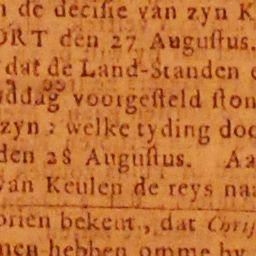 de decisie van zyn K
ORT den 27 Augustus.
dat de Land-Standen
voorgesteld ston
zyn : welke tyding doo
den 28 Augustus. Aa
van Keulen de reys naa
bekent, dat Chris
hebben omme by